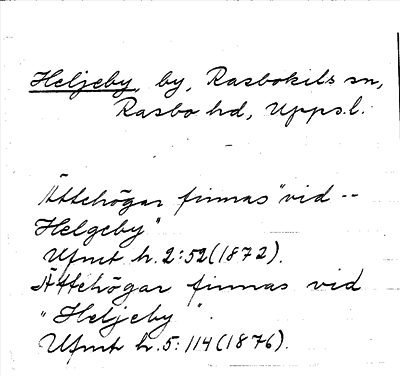 Heljeby, by, Rasbokils sn,
Rasbo hd, Upps.l.
Ättehögar finnas "vid --
Helgeby"
Ufmt h. 2:52 (1872).
Ättehögar finnas vid
"Heljeby".
Ufmt h. 5:114 (1876).